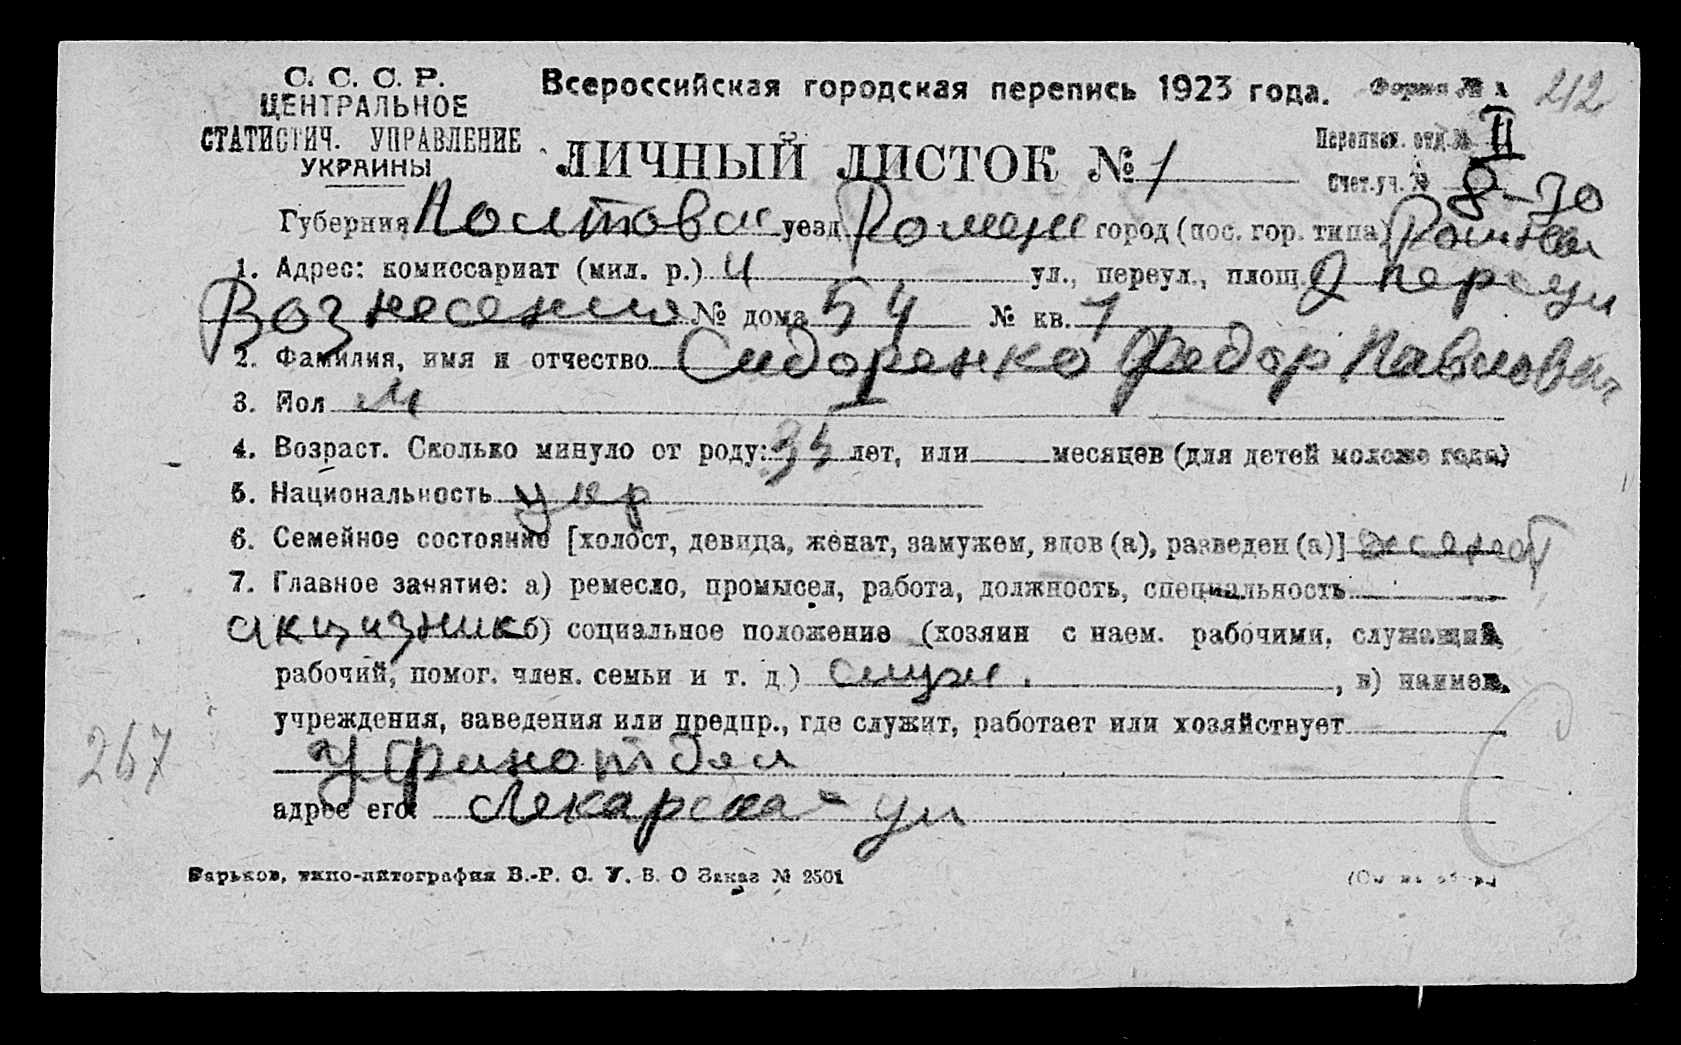 С. С. С. Р.
ЦЕНТРАЛЬНОЕ
СТАТИСТИЧ. УПРАВЛЕНИЕ
УКРАИНЫ
Всероссийская городская перепись 1923 года.
Форма № 1 212
ЛИЧНЫЙ ЛИСТОК № 1
Переписн. отд. № II
Счет.уч. № 8-70
Губерния Полтовск уезд Ромен город (пос. гор. типа) Ромны
1. Адрес: комиссариат (мил. р.) ул., переул., площ. 2 переул
Вознесения № дома 54 № кв. 1
2. Фамилия, имя и отчество Сидоренко Федор Павлович
3. Пол М I
4. Возраст. Сколько минуло от роду: 35 лет, или месяцев (для детей моложе года)
5. Национальность укр
6. Семейное состояние [холост, девица, женат, замужем, вдов (а), разведен (а)] женат
7. Главное занятие: а) ремесло, промысел, работа, должность, специальность
акцизник б) социальное положение (хозяин с наем. рабочими, служащий,
рабочий, помог. член. семьи и т. д.) служ. , в) наимен.
учреждения, заведения или предпр., где служит, работает или хозяйствует
Уфинотдел
адрес его: Лекарская ул
267
Харьков, типо-литография В.-Р. С. У. В. О Заказ № 2501